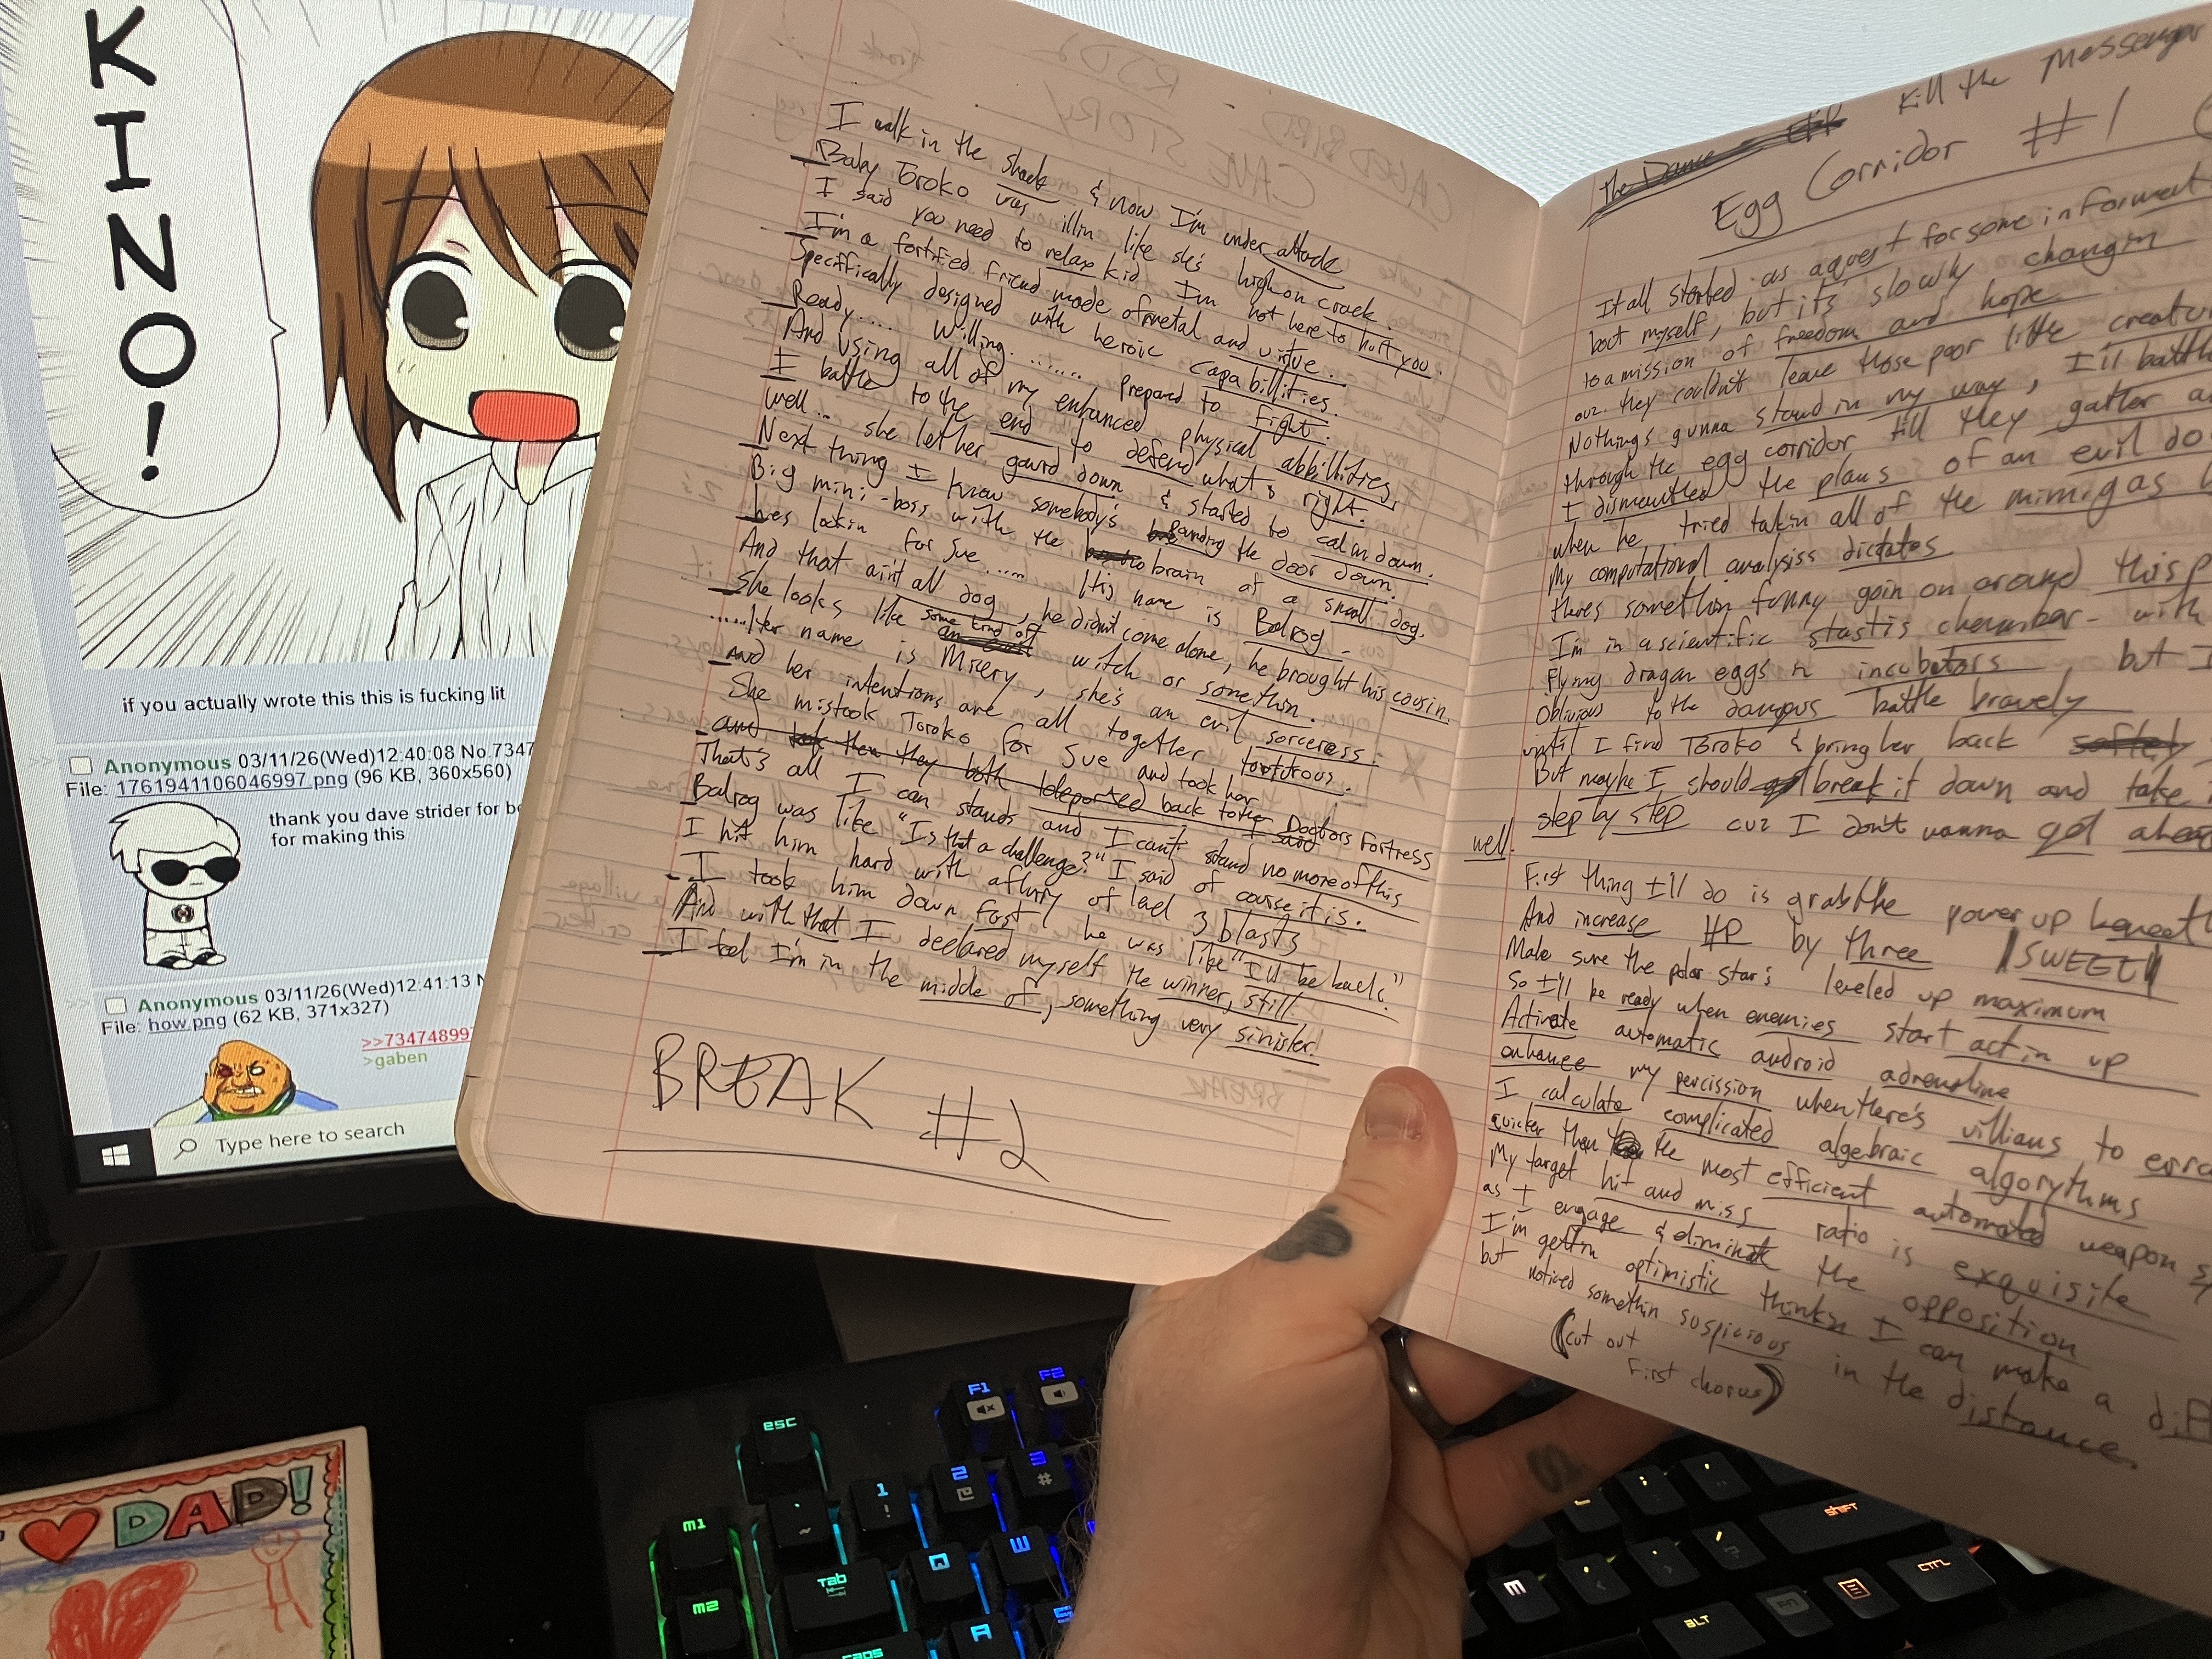 KINO!
if you actually wrote this this is fucking lit
Anonymous 03/11/26(Wed)12:40:08 No.7347
File: 1761941106046997.png (96 KB, 360x560)
thank you dave strider for b
for making this
Anonymous 03/11/26(Wed)12:41:13 N
File: how.png (62 KB, 371x327)
>>73474899
>gaben
Type here to search
I walk in the shack & now I'm under attack
Baby Toroko was illin like she's high on crack.
I said you need to relax kid, I'm not here to hurt you.
I'm a fortified friend made of metal and virtue.
Speciffically designed with heroic capabillities.
Ready..... Willing........ Prepared to fight.
And using all of my enhanced physical abbillities
I battle to the end to defend what's right.
Well... she let her gaurd down & started to calm down.
Next thing I know somebody's Banding the door down.
Big mini-boss with the brain of a small dog.
hes lookin for Sue...... His name is Balrog -
And that ain't all dog, he didn't come alone, he brought his cousin.
She looks like some kind of witch or somethin.
......Her name is Misery, she's an evil sorceress.
And her intentions are all together tortturous.
She mistook Toroko for Sue and took her
and took them they both teleported back to the Doctors Fortress
That's all I can stands and I can't stand no more of this
Balrog was like "Is that a challenge?" I said of course it is.
I hit him hard with a flurry of level 3 blasts
I took him down fast, he was like "I'll be back."
And with that I declared myself the winner, still
I feel I'm in the middle of, something very sinister.
BREAK #2
The Dance - Kill the Messenger
Egg Corridor #1
It all started as a quest for some informat
bout myself, but it's slowly changin
to a mission of freedom and hope
cuz they couldn't leave those poor little creatur
Nothings gunna stand in my way, I'll battle
through the egg corridor till they gather a
I dismantled the plans of an evil do
when he tried takin all of the mimigas
My computational analysiss dictates
theres somethin funny goin on around this p
I'm in a scientific stastis chamber - with
flying dragan eggs n incubators, but I
Oblivious to the dangus battle bravely
until I find Toroko & bring her back softly
But maybe I should break it down and take
step by step cuz I don't wanna get ahea
well.
First thing I'll do is grab the power up beneath
And increase HP by three "SWEET"
Make sure the polar star's leveled up maximum
So I'll be ready when enemies start actin up
Activate automatic android adrenaline
enhance my percission when there's villians to erra
I calculate complicated algebraic algorythms
quicker than the most efficient automated weapon sy
My target hit and miss ratio is exquisite
as I engage & eliminate the opposition
I'm gettin optimistic thinkn I can make a diff
but noticed somethin suspicious in the distance.
(cut out
First chorus)
I ♥ DAD!
esc
F1
F2
1 !
2
3 #
m1
Tab
Q
W
m2
A
caps
M
shift
ALT
FN
CTL